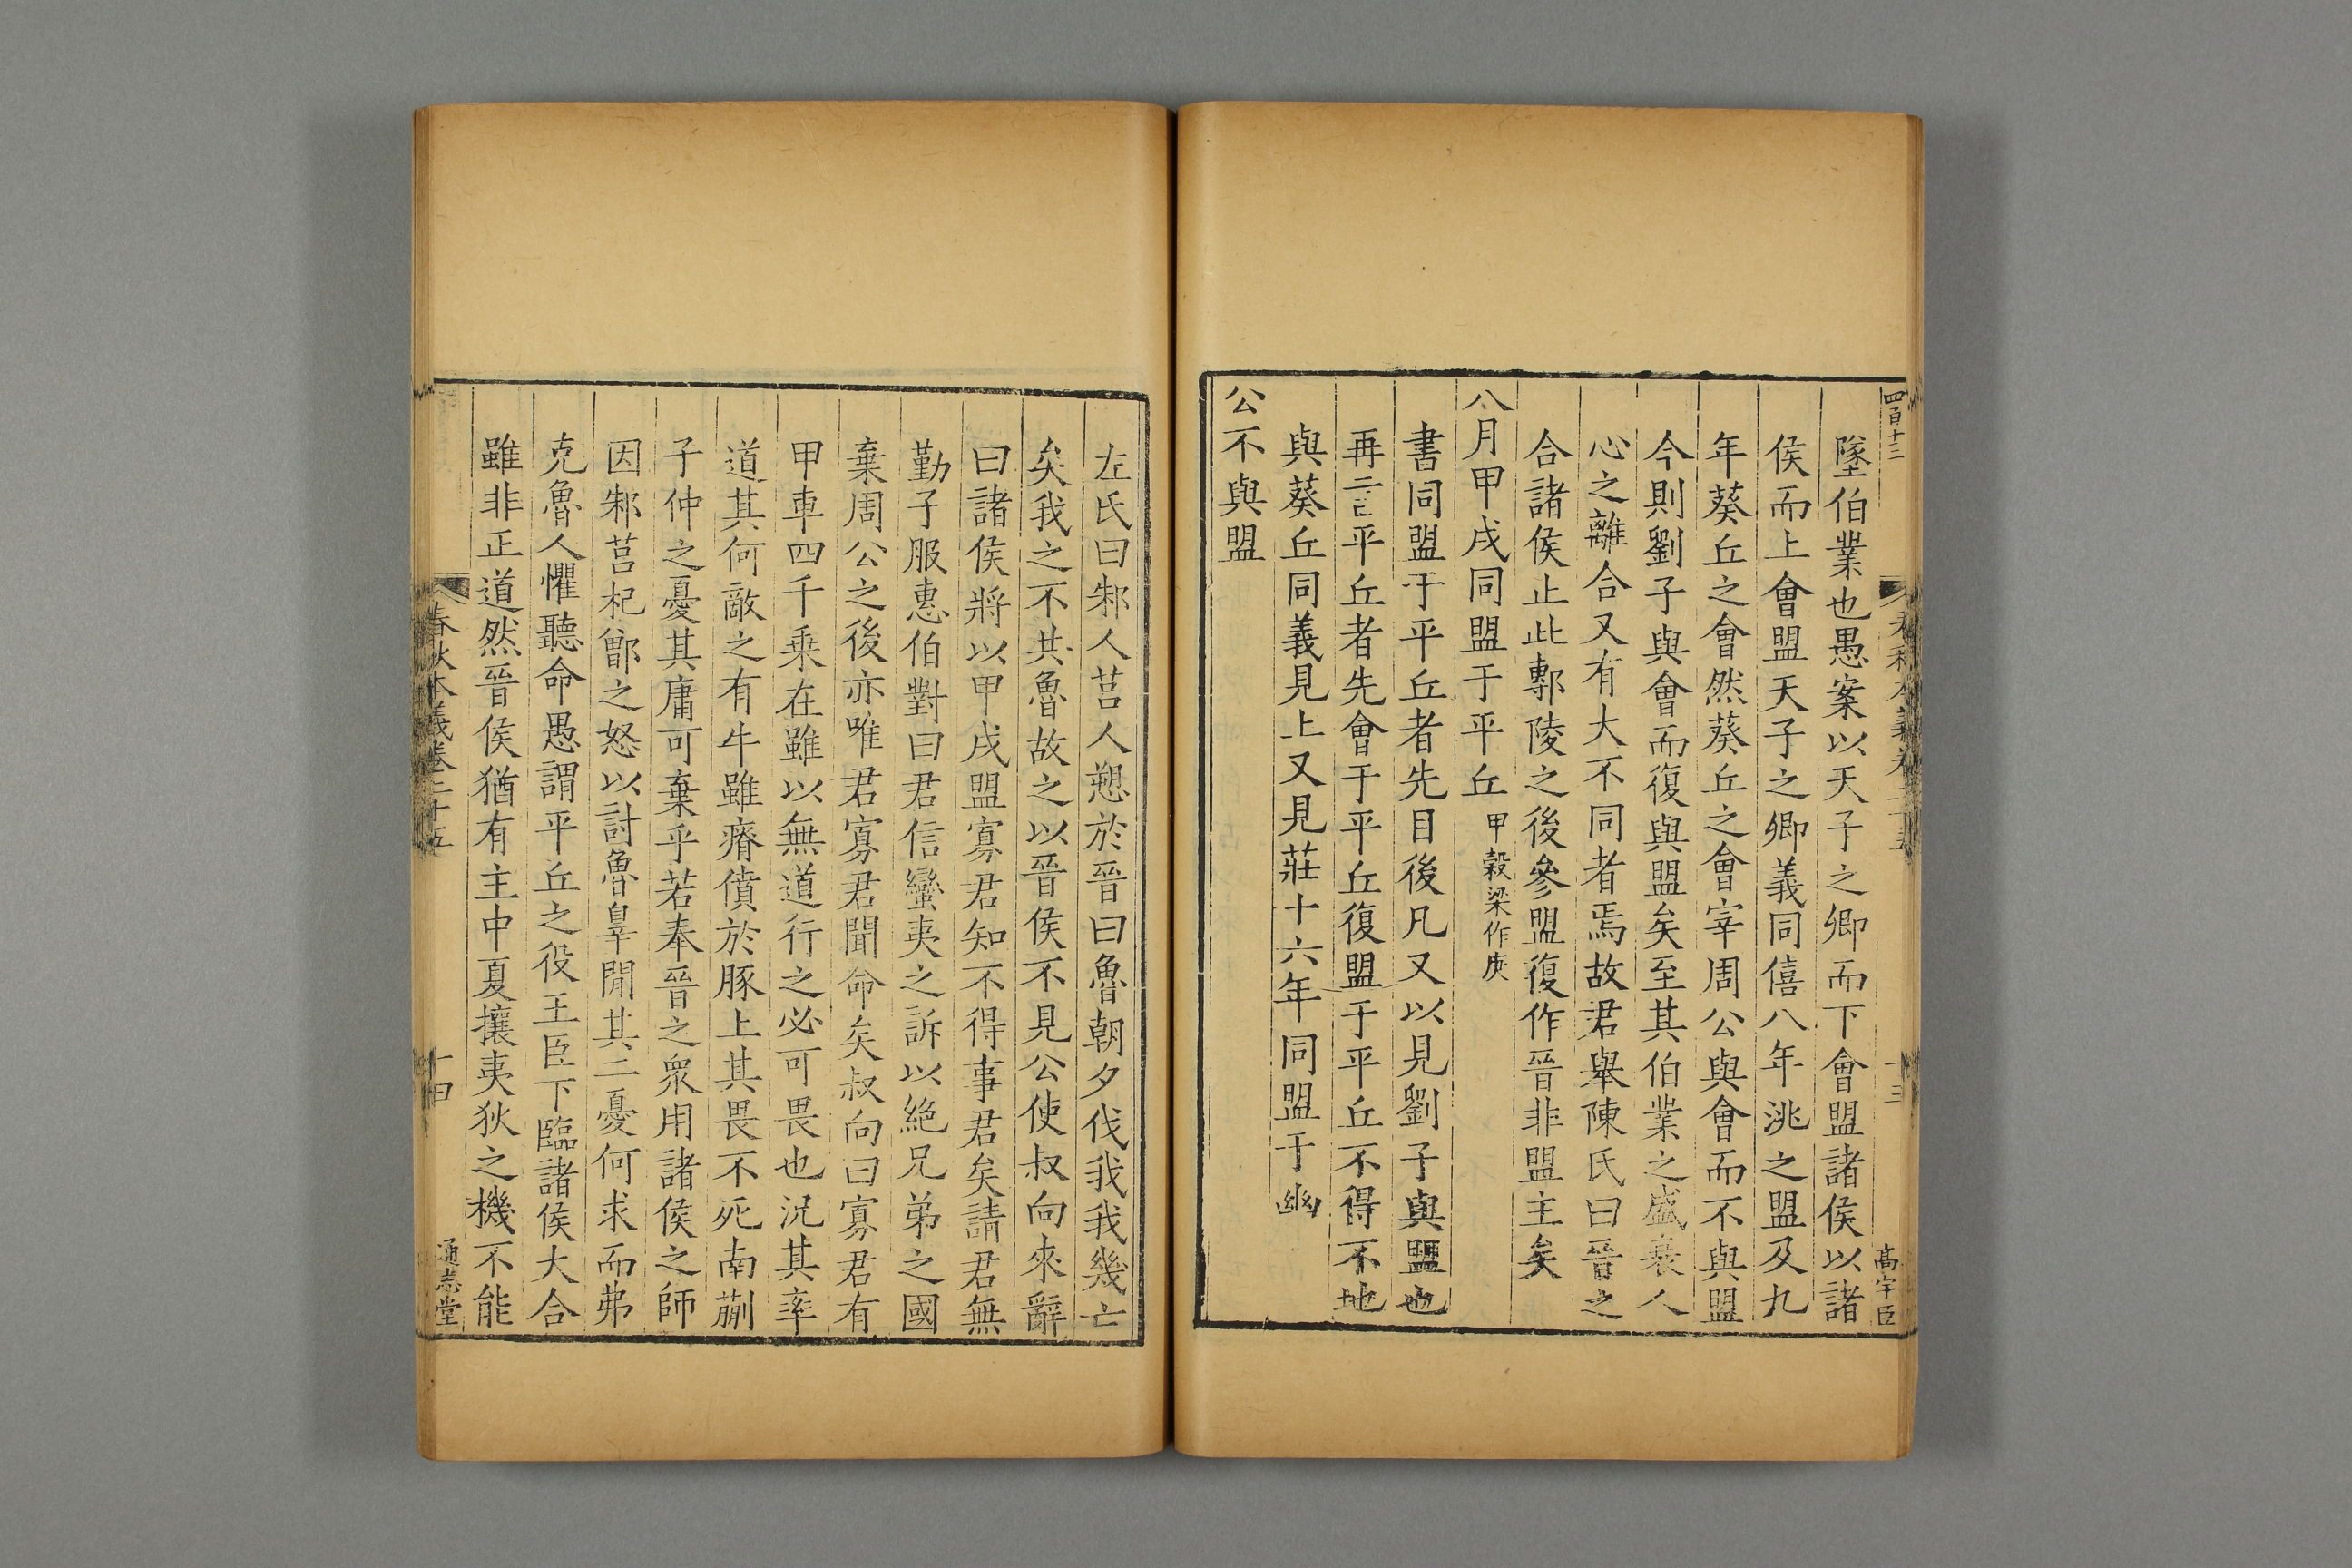 四百十三
春秋本義卷二十五
十三
高宇臣
墜伯業也愚案以天子之卿而下會盟諸侯以諸
侯而上會盟天子之卿義同僖八年洮之盟及九
年葵丘之會然葵丘之會宰周公與會而不與盟
今則劉子與會而復與盟矣至其伯業之盛衰人
心之離合又有大不同者焉故君舉陳氏曰晉之
合諸侯止此鄟陵之後參盟復作晉非盟主矣
八月甲戌同盟于平丘甲穀梁作庚
書同盟于平丘者先目後凡又以見劉子與盟也
再言平丘者先會于平丘復盟于平丘不得不地
與葵丘同義見上又見莊十六年同盟于幽
公不與盟
左氏曰邾人莒人愬於晉曰魯朝夕伐我我幾亡
矣我之不共魯故之以晉侯不見公使叔向來辭
曰諸侯將以甲戌盟寡君知不得事君矣請君無
勤子服惠伯對曰君信蠻夷之訴以絕兄弟之國
棄周公之後亦唯君寡君聞命矣叔向曰寡君有
甲車四千乘在雖以無道行之必可畏也況其率
道其何敵之有牛雖瘠僨於豚上其畏不死南蒯
子仲之憂其庸可棄乎若奉晉之衆用諸侯之師
因邾莒杞鄫之怒以討魯辠閒其二憂何求而弗
克魯人懼聽命愚謂平丘之役王臣下臨諸侯大合
雖非正道然晉侯猶有主中夏攘夷狄之機不能
春秋本義卷二十五
十四
通志堂